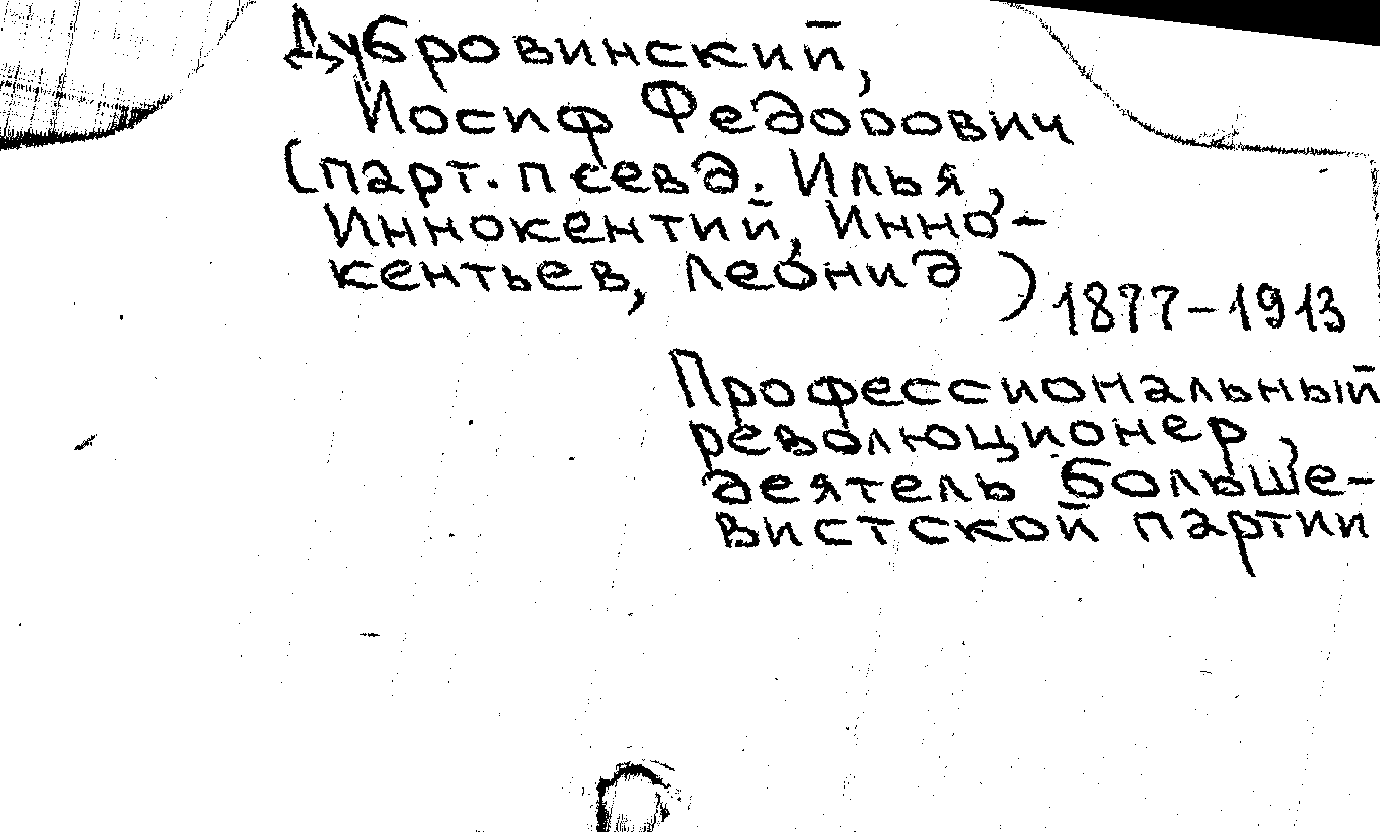 Дубровинский,
Иосиф Федорович
(парт. псевд. Илья,
Иннокентий, Инно-
кентьев, Леонид) 1877-1913
Профессиональный
революционер,
деятель больше-
вистской партии